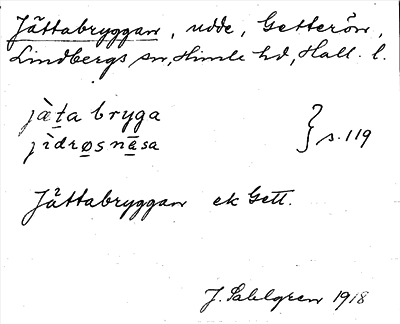 Jättabryggan, udde, Getterön,
Lindbergs sn, Himle hd, Hall. l.
jàta bryga
jìdrøs næsa } s. 119
Jättabryggan ek Gett.
J. Sahlgren 1918